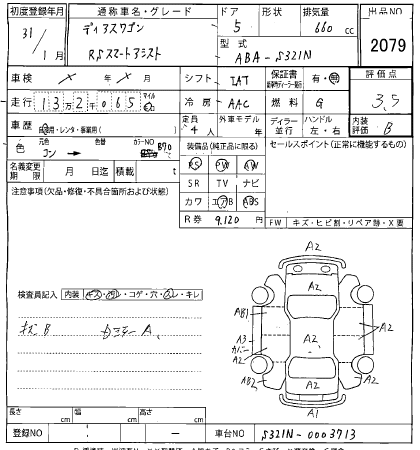 初度登録年月 通称車名・グレード ドア 形状 排気量 出品NO
31/1月 ディアスワゴン 5 660 cc
RSスマートアシスト 型式 ABA-S321N 2079
車検 × 年 × 月 シフト IAT 保証書 有・無 評価点
走行 132065 マイル 冷房 AAC 燃料 G 3.5
車歴 自家用・レンタ・事業用( ) 定員 4人 外車モデル 年 ディーラー 並行 ハンドル 左・右 内装評価 B
色 元色 コン → 色替 カラーNO B70 装備品(純正品に限る) セールスポイント(正常に機能するもの)
名義変更期限 月 日迄 積載 t
PS PW AW
注意事項(欠品・修復・不具合箇所および状態)
SR TV ナビ
カワ エアB ABS
R券 9,120 円
FW キズ・ヒビ割・リペア跡・X要
検査員記入 内装 キズ・汚レ・コゲ・穴・スレ・キレ
キズB A
A2
A2
AB1
A3
カバー
A2
A2
A2
AB2
A2
A1
長さ cm 幅 cm 高さ cm
登録NO : - 車台NO S321N-0003713